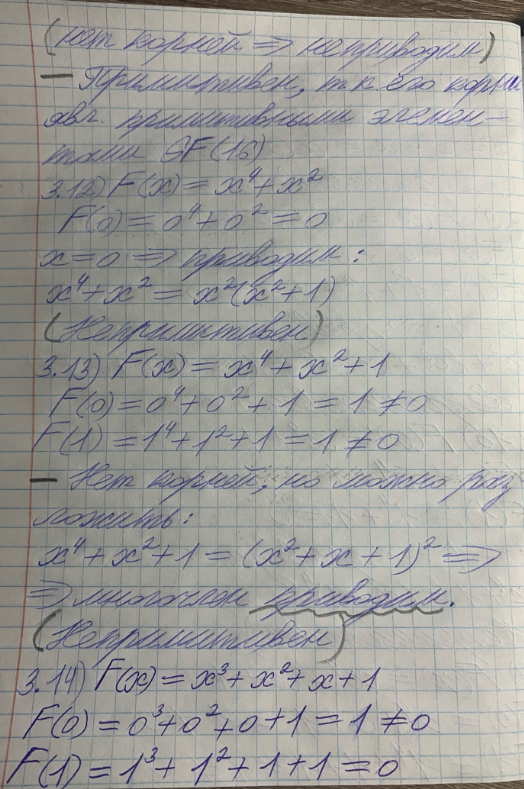 (нет корней ⇒ неприводим)
— Примитивен, т.к. его корни
явл. примитивными элемен-
тами GF(16)
3.12) F(x) = x⁴ + x²
F(0) = 0⁴ + 0² = 0
x = 0 ⇒ приводим:
x⁴ + x² = x²(x² + 1)
(Непримитивен)
3.13) F(x) = x⁴ + x² + 1
F(0) = 0⁴ + 0² + 1 = 1 ≠ 0
F(1) = 1⁴ + 1² + 1 = 1 ≠ 0
— Нет корней, но можно раз
ложить:
x⁴ + x² + 1 = (x² + x + 1)² ⇒
⇒ многочлен приводим.
(Непримитивен)
3.14) F(x) = x³ + x² + x + 1
F(0) = 0³ + 0² + 0 + 1 = 1 ≠ 0
F(1) = 1³ + 1² + 1 + 1 = 0